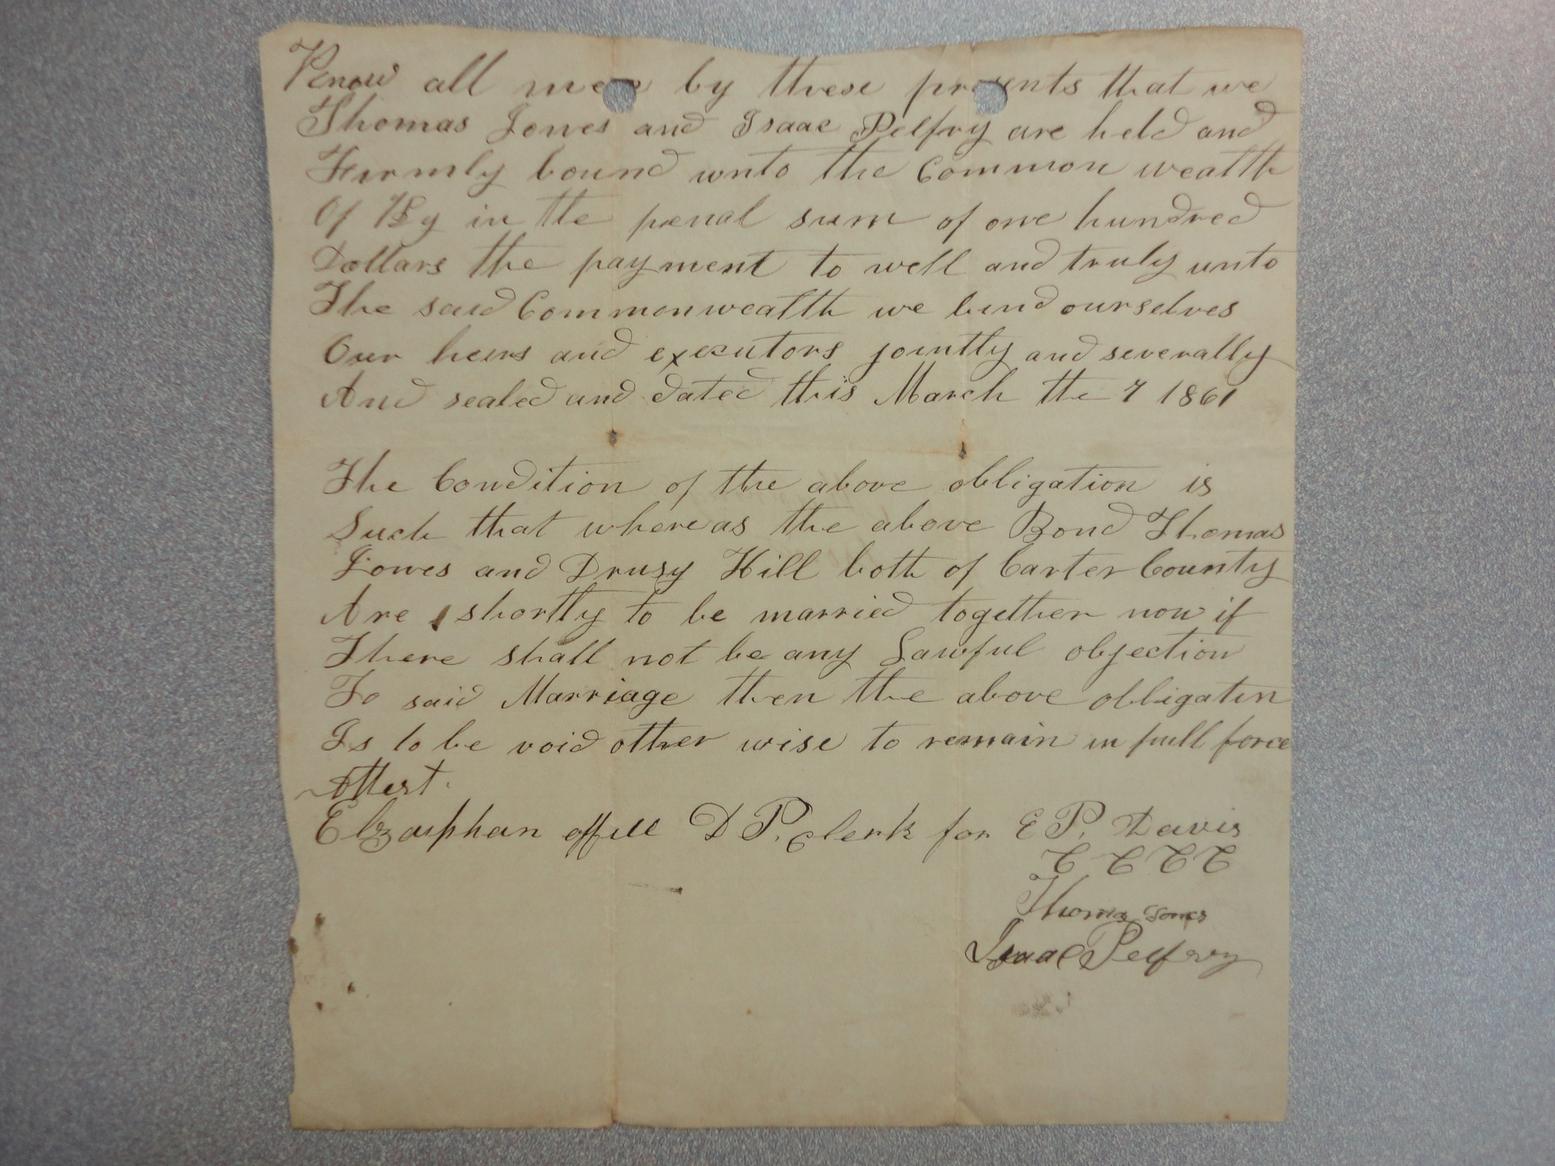 Know all men by these presents that we
Thomas Jones and Isaac Pelfry are held and
Firmly bound unto the Common wealth
Of Ky in the penal sum of one hundred
Dollars the payment to well and truly unto
The said Commonwealth we bind ourselves
Our heirs and executors jointly and severally
And sealed and dated this March the 7 1861
The Condition of the above obligation is
Such that whereas the above Bond Thomas
Jones and Drusy Hill both of Carter County
Are shortly to be married together now if
There shall not be any Lawful objection
To said Marriage then the above obligatin
Is to be void other wise to remain in full force
Attest.
Elzaphan offill D P. clerk for E P. Davis
C C C C
Thomas Jones
Isaac Pelfrey